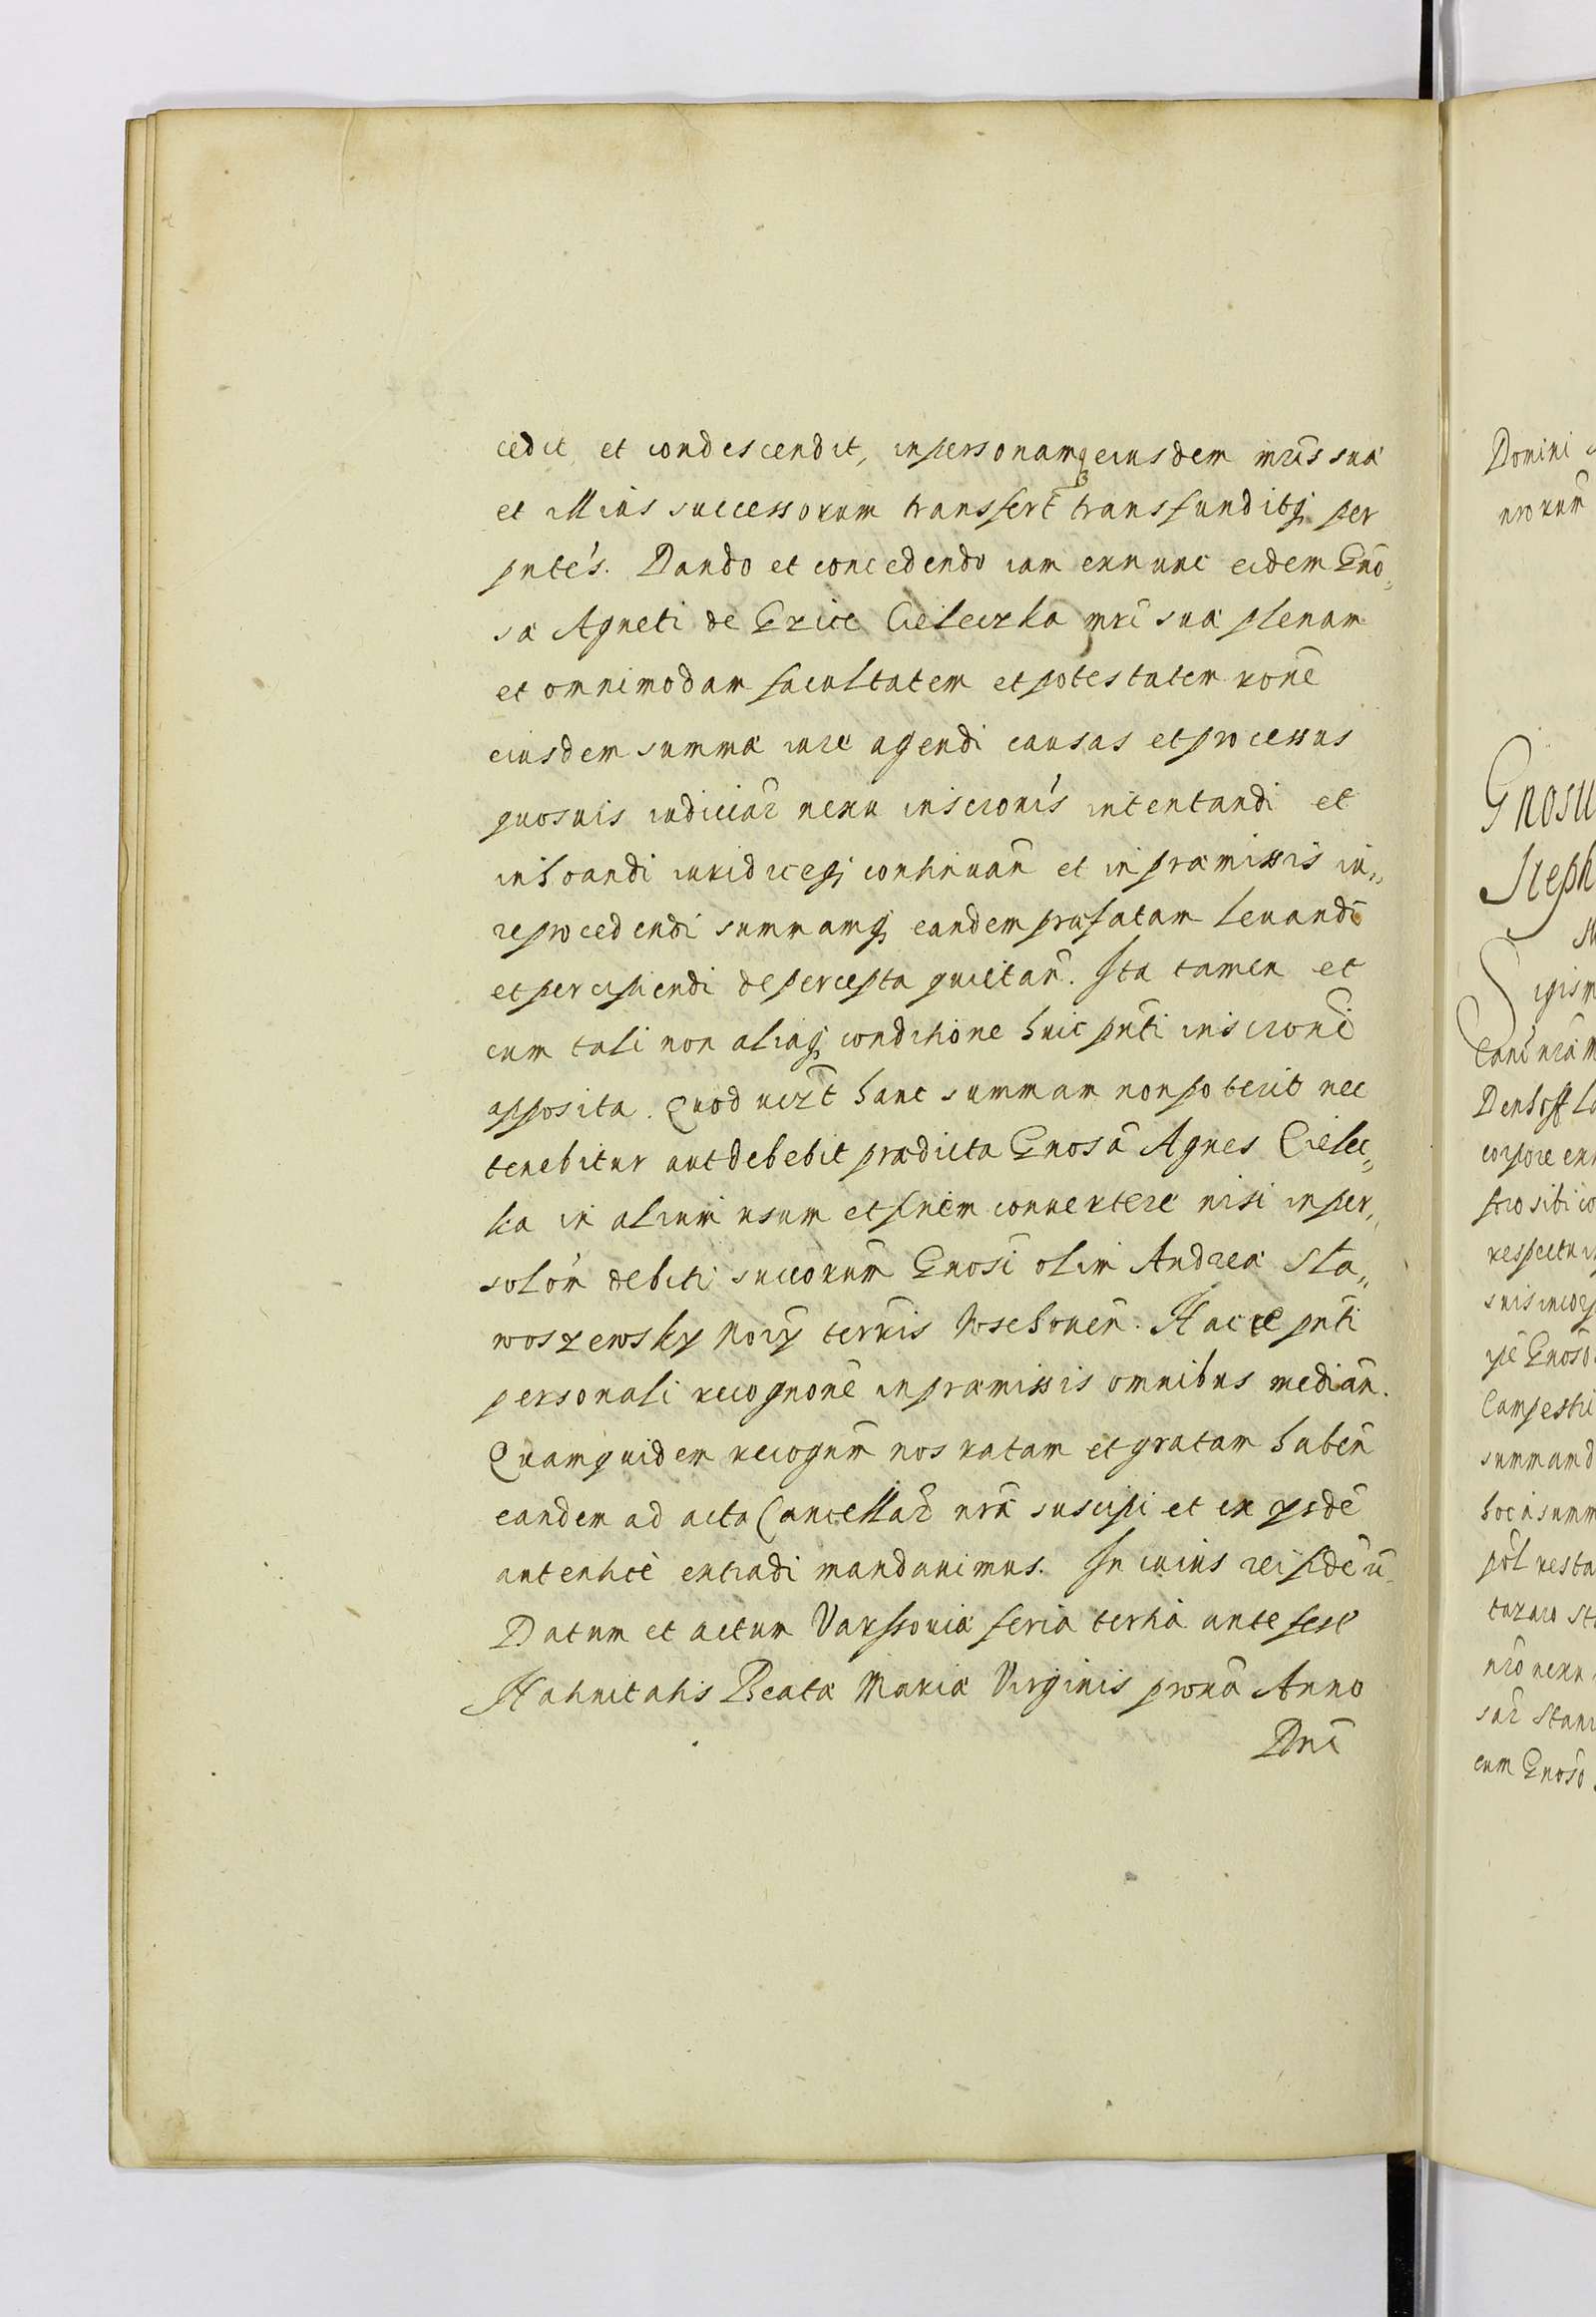 cedit et condescendit, in personamq eiusdem mr̃is suæ
et illius successorum transfert̃ transfunditq per
pntes. Dando et concedendo iam exnunc eidem Gno,
sæ Agneti de Grice Cieleczka mr̃i suæ plenam
et omnimodam facultatem et potestatem rone
eiusdem summæ iure agendi causas et processus
quosuis iudiciar̃ nexu inscronis intentandi et
inhoandi iuridiceq continuan̄ et in præmissis iu,,
re procedendi summamq eandem præfatam leuandi
et percipiendi de percepta quietan̄. Ita tamen et
cum tali non aliaq conditione huic pn̄ti inscroni
apposita. Quod uizt̃ hanc summam non poterit nec
tenebitur aut debebit prædicta Gnosa Agnes Cielec,,
ka in alium usum et finem conuertere nisi in per,,
soloñ debiti succorum Gnosi olim Andreæ Sta,,
woszewsky Nory terris Wschouen̄. Hacce pn̄ti
personali recognone in præmissis omnibus median̄.
Quamquidem recognm̄ nos ratam et gratam haben̄
eandem ad acta Cancellar̃ nr̃æ suscipi et ex ysdē
autenticē extradi mandauimus. In cuius rei fidē ū
Datum et actum Varssouiæ feria tertia ante fest̃
Natiuitatis Beatæ Mariæ Virginis proxā Anno
Dnī

Domini
nrorum̄
Gnosu
Steph
Sigism
Denhoff
corpore
pro sibi co
respectu
ipē Gnoso
Campestri
summam d
hoc a summ
sar̃ Stani
cum Gnoso